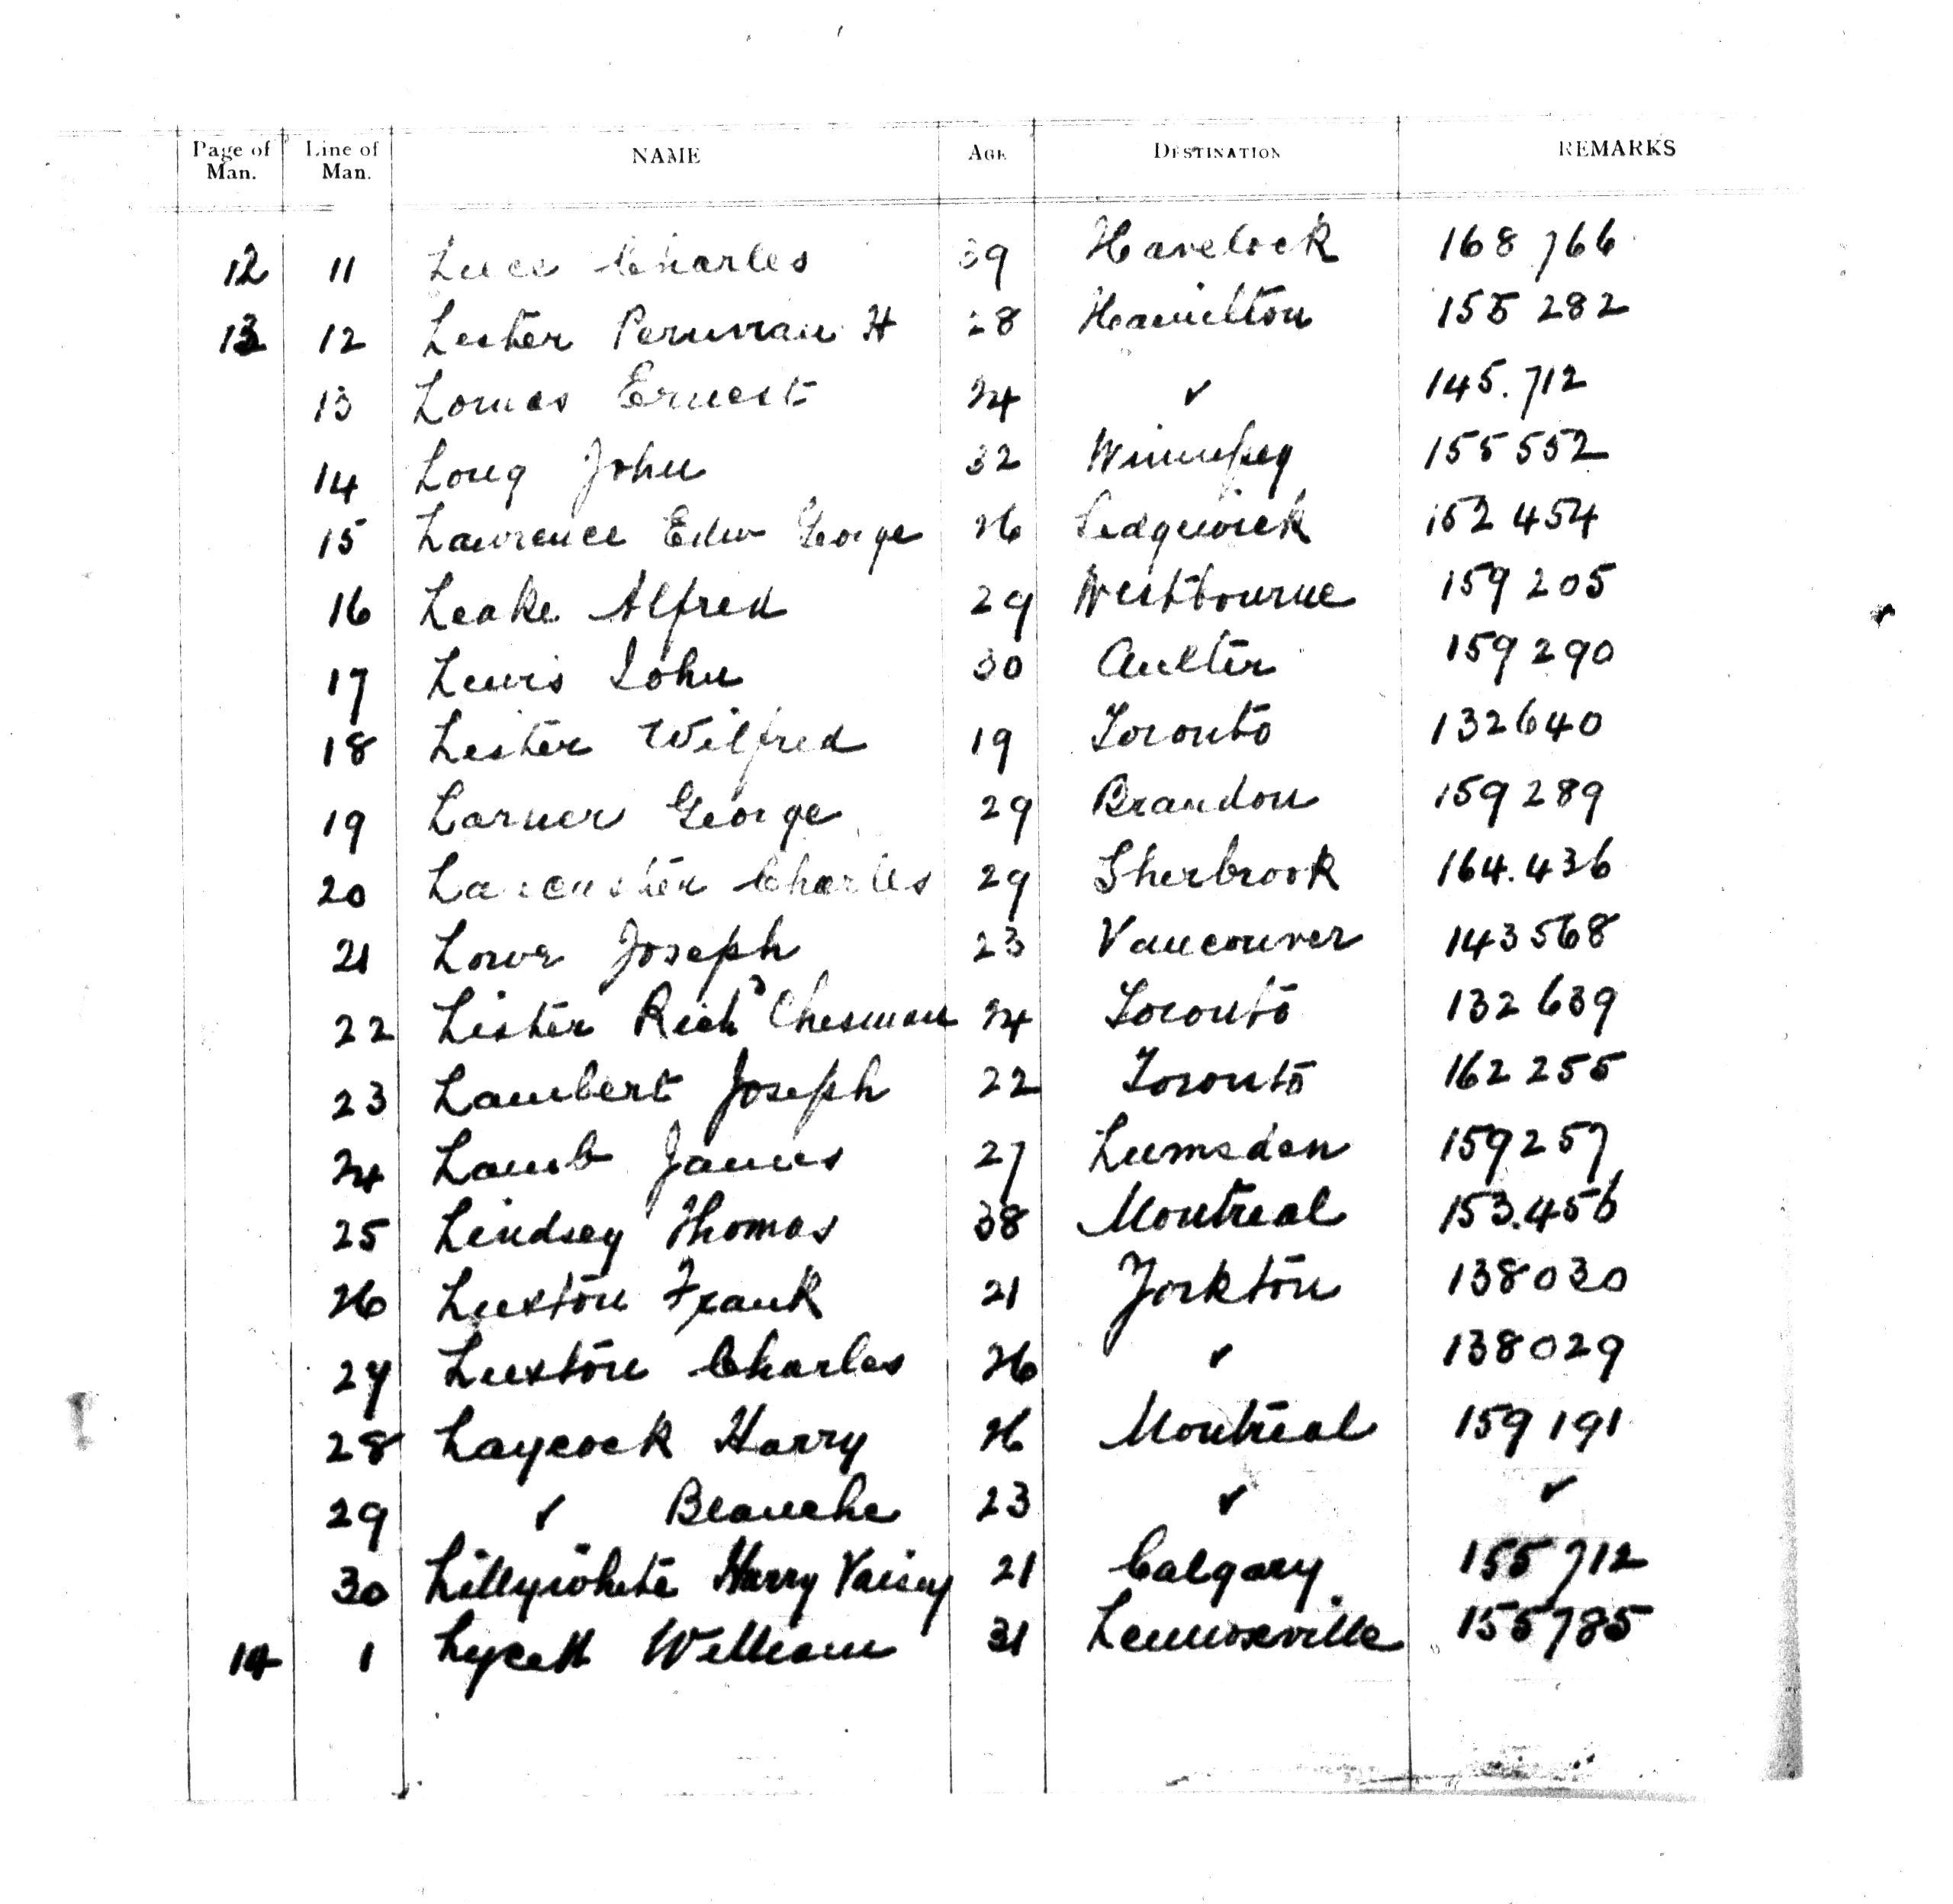 Page of Man. Line of Man. NAME AGE DESTINATION REMARKS
12 11 Luce Charles 39 Havelock 168 766
13 12 Lester Peruvian H 28 Hamilton 155 282
13 Lomas Ernest 24 ✓ 145.712
14 Long John 32 Winnipeg 155552
15 Lawrence Edw George 26 Sedgwick 152 454
16 Leake Alfred 29 Westbourne 159 205
17 Lewis John 30 159290
18 Lester Wilfred 19 Toronto 132640
19 Larner George 29 Brandon 159289
20 Lancaster Charles 29 Sherbrook 164.436
21 Lowe Joseph 23 Vancouver 143568
22 Lister Richd Chesman 24 Toronto 132639
23 Lambert Joseph 22 Toronto 162 255
24 Lamb James 27 Lumsden 159257
25 Lindsey Thomas 38 Montreal 153.456
26 Luxton Frank 21 Yorkton 138030
27 Luxton Charles 26 ✓ 138029
28 Laycock Harry 26 Montreal 159 191
29 ✓ Blanche 23 ✓ ✓
30 Lillywhite Harry Vaisey 21 Calgary 155 712
14 1 Lycett William 31 Lennoxville 155785